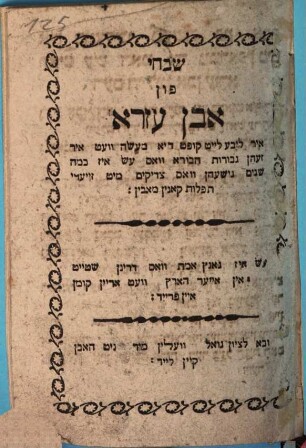 125
שבחי
פון
אבן עזרא
איר ליבע לייט קופט דיא מעשה וועט איר
זעהן גבורות הבורא וואס עש איז כמה
שנים גישעהן וואס צדיקים מיט זייערי
תפלות קאנין מאכין :
עש איז גאנץ אמת וואס דרינן שטייט
אין אייער הארץ וועט אריין קומן
איין פרייד :
ובא לציון גואל וועלין מיר ניט האבן
קיין לייד :